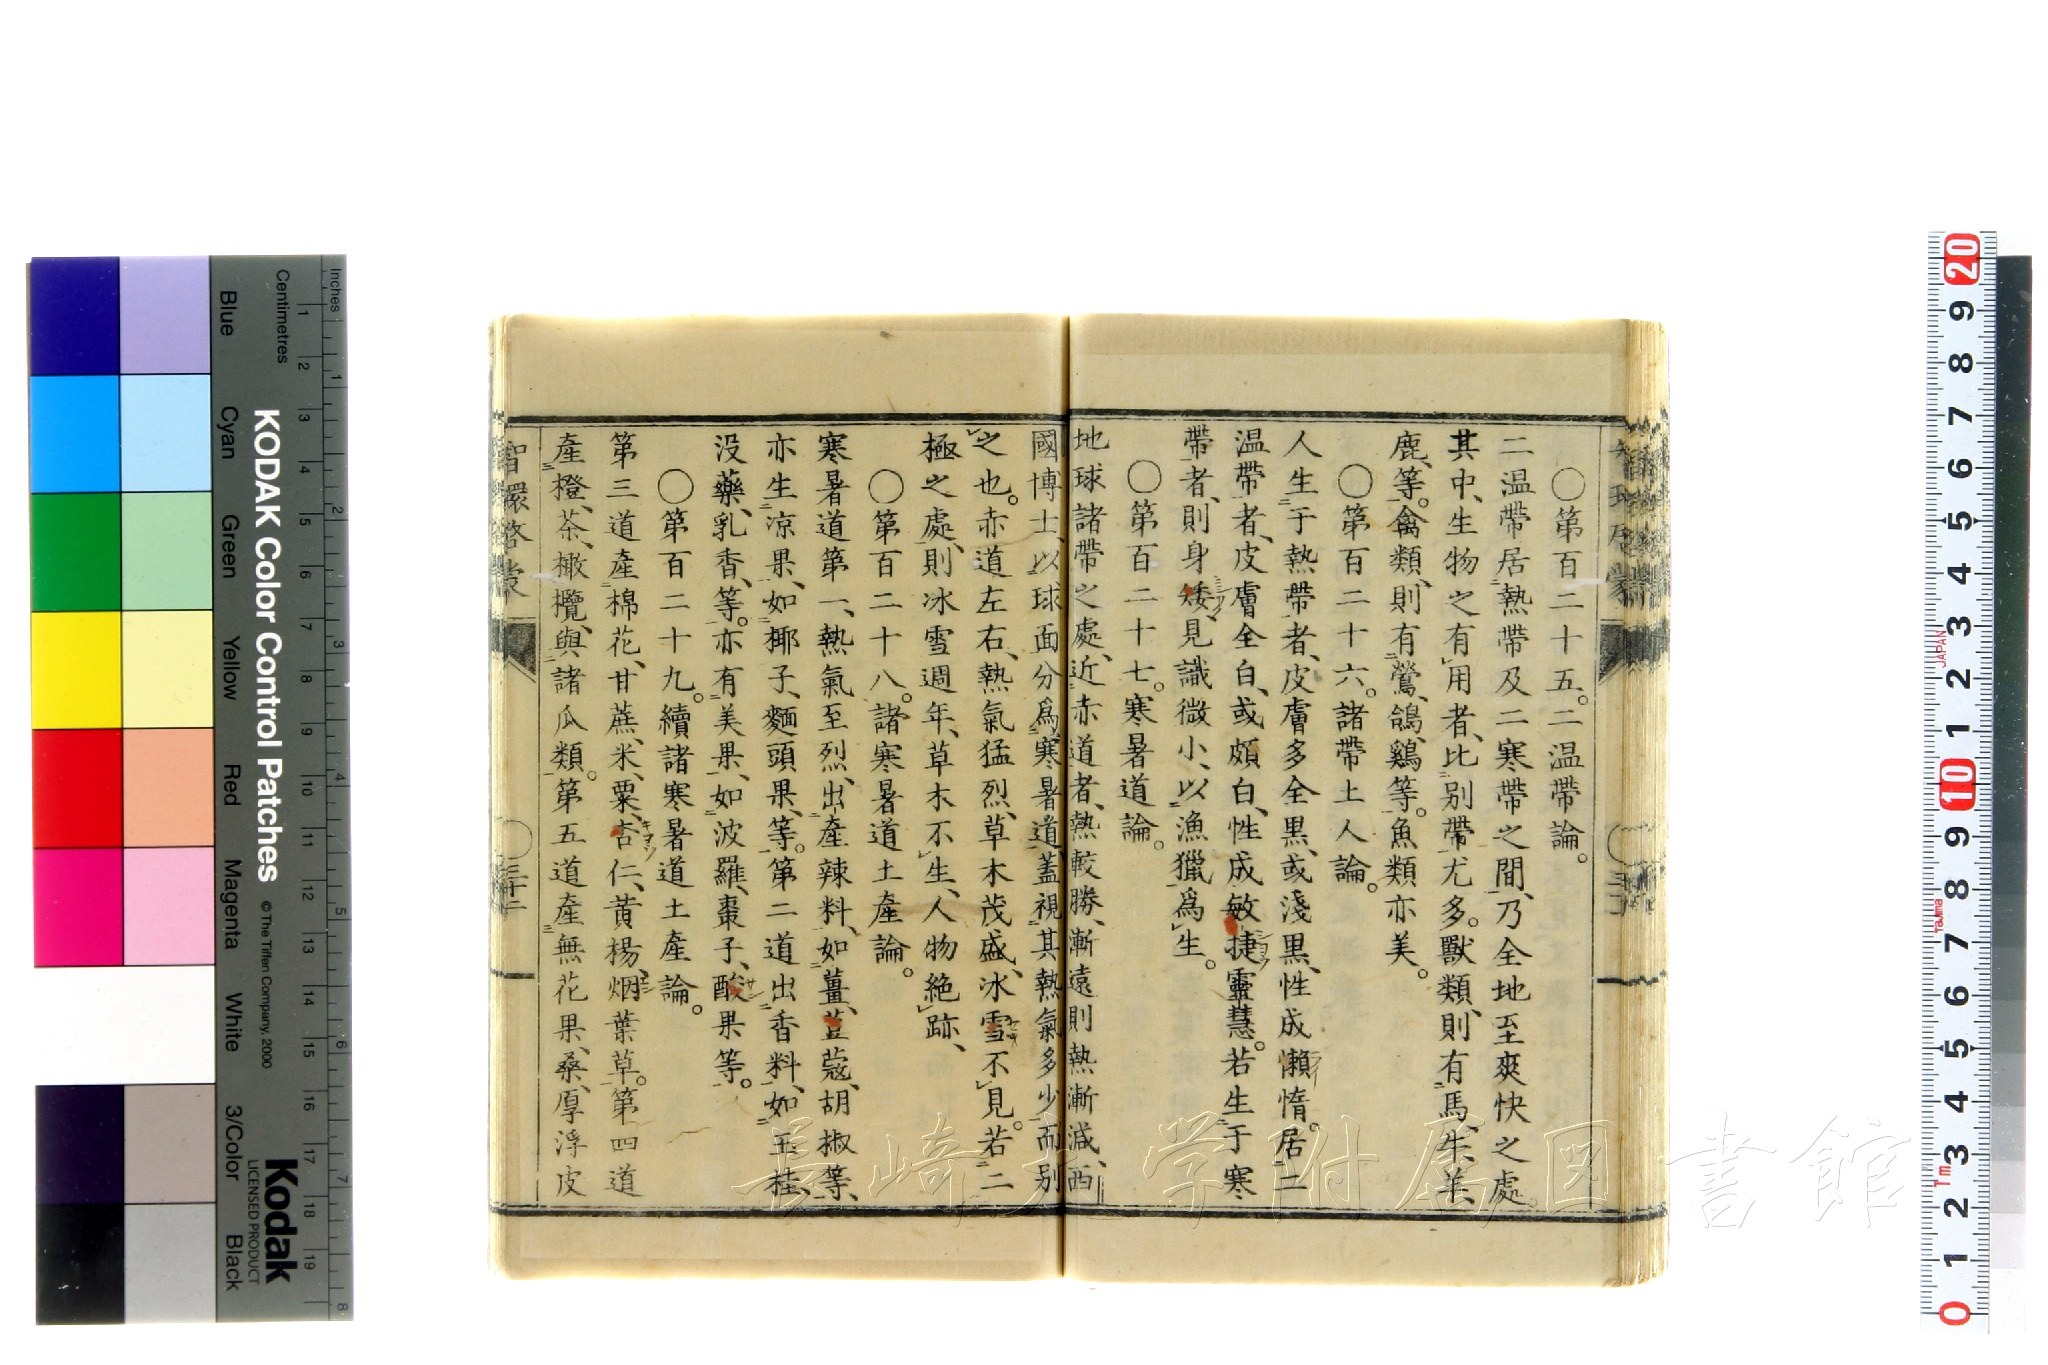 〇第百二十五。二温帶論。
二温帶居熱帶及二寒帶之間、乃全地至爽快之處。
其中、生物之有用者、比别帶尤多。獸類、則有馬、牛、羊、
鹿、等。禽類、則有鶯、鴿、鷄等。魚類亦美。
〇第百二十六。諸帶土人論。
人生于熱帶者、皮膚多全黒、或淺黒、性成懶惰。居二
温帶者、皮膚全白、或頗白、性成敏捷靈慧。若生于寒
帶者、則身矮見識微小、以漁獵爲生。
〇第百二十七。寒暑道論。
地球諸帶之處、近赤道者、熱較勝、漸遠則熱漸減、西
國博士、以球面分爲寒暑道、蓋視其熱氣多少而别
之也。赤道左右、熱氣猛烈、草木茂盛、冰雪不見。若二
極之處、則冰雪週年、草木不生、人物絶跡、
〇第百二十八。諸寒暑道土產論。
寒暑道第一、熱氣至烈、出產辣料、如薑、荳蔻、胡椒等、
亦生凉果、如椰子、麵頭果、等。第二道出香料、如玉桂、
没藥、乳香、等。亦有美果、如波羅、棗子、酸果等。
〇第百二十九。續諸寒暑道土產論。
第三道產棉花、甘蔗、米、粟、杏仁、黄楊、烟葉草。第四道
產橙、茶、橄欖、與諸瓜類。第五道產無花果、桑、厚浮皮
智環啓蒙
〇三十二
KODAK Color Control Patches
© The Tiffen Company, 2000
Kodak
LICENSED PRODUCT
Inches
Centimetres
Blue
Cyan
Green
Yellow
Red
Magenta
White
3/Color
Black
JAPAN
Tajima
長崎大学附属図書館